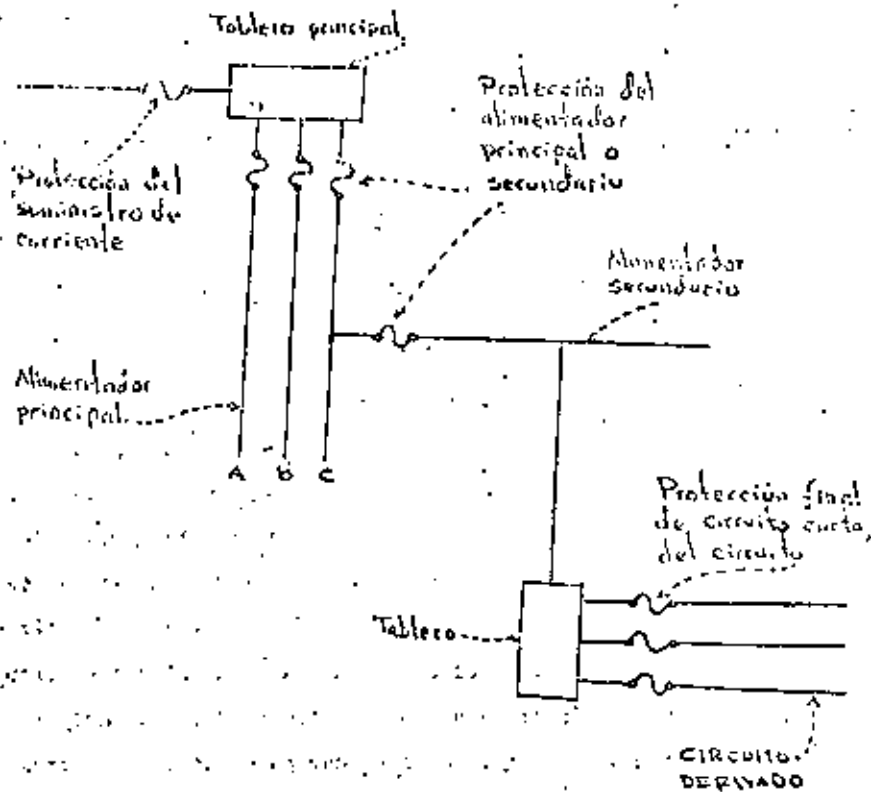 Tablero principal
Protección del
alimentador
principal o
secundario
Protección del
suministro de
corriente
Alimentador
secundario
Alimentador
principal
A b c
Protección final
de circuito corto,
del circuito
Tablero
CIRCUITO
DERIVADO